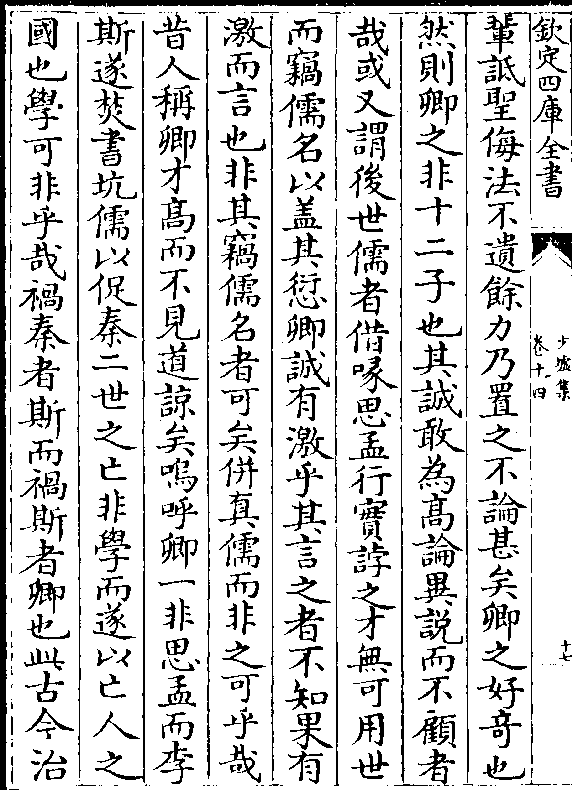 欽定四庫全書
少墟集
卷十四
十七
輩詆聖侮法不遺餘力乃置之不論甚矣卿之好奇也
然則卿之非十二子也其誠敢為髙論異説而不顧者
哉或又謂後世儒者借喙思孟行實誖之才無可用世
而竊儒名以盖其愆卿誠有激乎其言之者不知果有
激而言也非其竊儒名者可矣併真儒而非之可乎哉
昔人稱卿才髙而不見道諒矣嗚呼卿一非思孟而李
斯遂焚書坑儒以促秦二世之亡非學而遂以亡人之
國也學可非乎哉禍秦者斯而禍斯者卿也此古今治